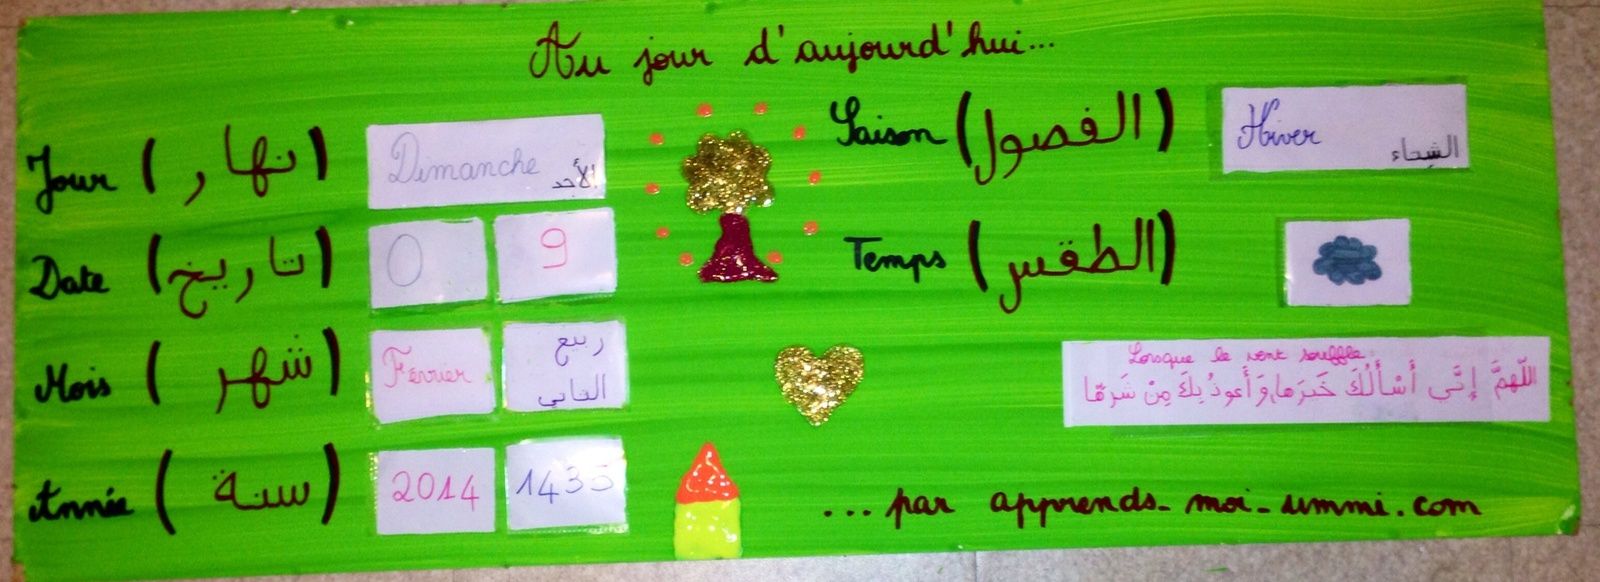 Au jour d'aujourd'hui...
Jour (نهار)
Dimanche
الأحد
Date (تاريخ)
0 9
Mois (شهر)
Février
ربيع
الثاني
Année (سنة)
2014 1435
Saison (الفصول)
Hiver
الشتاء
Temps (الطقس)
Lorsque le vent souffle:
اللّهمَّ إنَّي أَسْأَلُكَ خَيرَها وَ أَعوذُ بِكَ مِنْ شَرِّها
... par apprends-moi-ummi.com